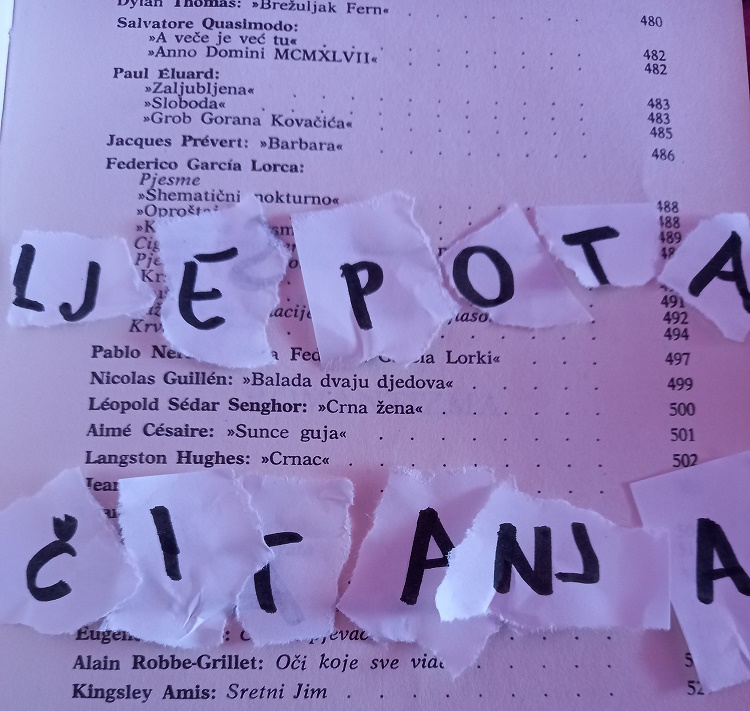 Dylan Thomas: »Brežuljak Fern«
Salvatore Quasimodo: 480
»A veče je već tu«
»Anno Domini MCMXLVII« 482
482
Paul Éluard:
»Zaljubljena«
»Sloboda« 483
»Grob Gorana Kovačića« 483
485
Jacques Prévert: »Barbara«
486
Federico García Lorca:
Pjesme
»Shematični nokturno«
488
488
489
LJEPOTA
491
492
494
Pablo Lorki« 497
Nicolas Guillén: »Balada dvaju djedova« 499
Léopold Sédar Senghor: »Crna žena« 500
Aimé Césaire: »Sunce guja« 501
Langston Hughes: »Crnac« 502
ČITANJA
Alain Robbe-Grillet: Oči koje sve
Kingsley Amis: Sretni Jim